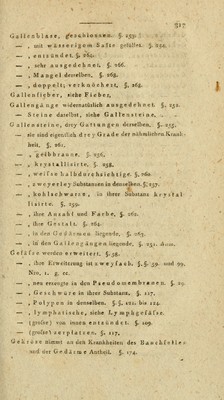 217
Gallenblase, geschlossen. §. 259.
— , mit wässerigem Safte gefüllet. §. 252.
— , entzündet. §. 260.
— , sehr ausgedehnt. §. 266.
— , Mangel derselben. §. 268.
— , doppelt, verknöchert, §. 268.
Gallenfieber, siehe Fieber.
Gallengänge widernatürlich ausgedehnt §. 251.
— Steine daselbst, siehe Gallensteine.
Gallensteine, drey Gattungen derselben. §. 255.
— sie sind eigentlich drey Grade der nähmlichen Krankheit. §. 261.
— , gelbbraune. §. 256.
— , krystallisirte. §. 258.
— , weisse halbdurchsichtige. §. 260.
— , zweyerley Substanzen in denselben. §. 257.
— , kohlschwarze, in ihrer Substanz krystallisirte. §. 259.
— , ihre Anzahl und Farbe. §. 262.
— , ihre Gestalt. §. 264.
— , in den Gedärmen liegende, §. 263.
— , in den Gallengängen liegende, §. 251. Anm.
Gefässe werden erweitert. §. 98.
— , ihre Erweiterung ist zweyfach. §. §. 59. und 99. Nro. 1. g. cc.
— , neu erzeugte in den Pseudomembranen. §. 29.
— , Geschwüre in ihrer Substanz. §. 117.
— , Polypen in denselben. §. §. 121. bis 124.
— , lymphatische, siehe Lymphgefässe.
— (grosse) von innen entzündet. §. 109.
— (grosse) zerplatzen. §. 117.
Gekröse nimmt an den Krankheiten des Bauchfelles und der Gedärme Antheil. §. 174.